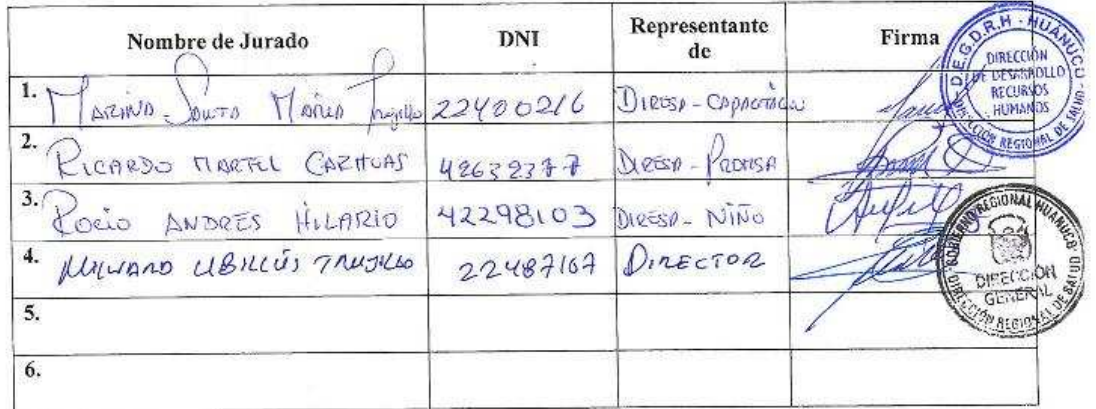 Nombre de Jurado DNI Representante de Firma
1. MARINA SANTA MARIA Trujillo 22400216 DIRESA - CAPACITACION
2. RICARDO MARTEL CARHUAS 42632377 DIRESA - PROMSA
3. ROCIO ANDRES HILARIO 42298103 DIRESA - NIÑO
4. MILWARD UBILLÚS TRUJILLO 22487167 DIRECTOR
5.
6.
D.E.G.D.R.H - HUÁNUCO
DIRECCIÓN
DE DESARROLLO
RECURSOS
HUMANOS
DIRECCION REGIONAL DE SALUD
GOBIERNO REGIONAL HUANUCO
DIRECCIÓN
GENERAL
DIRECCIÓN REGIONAL DE SALUD